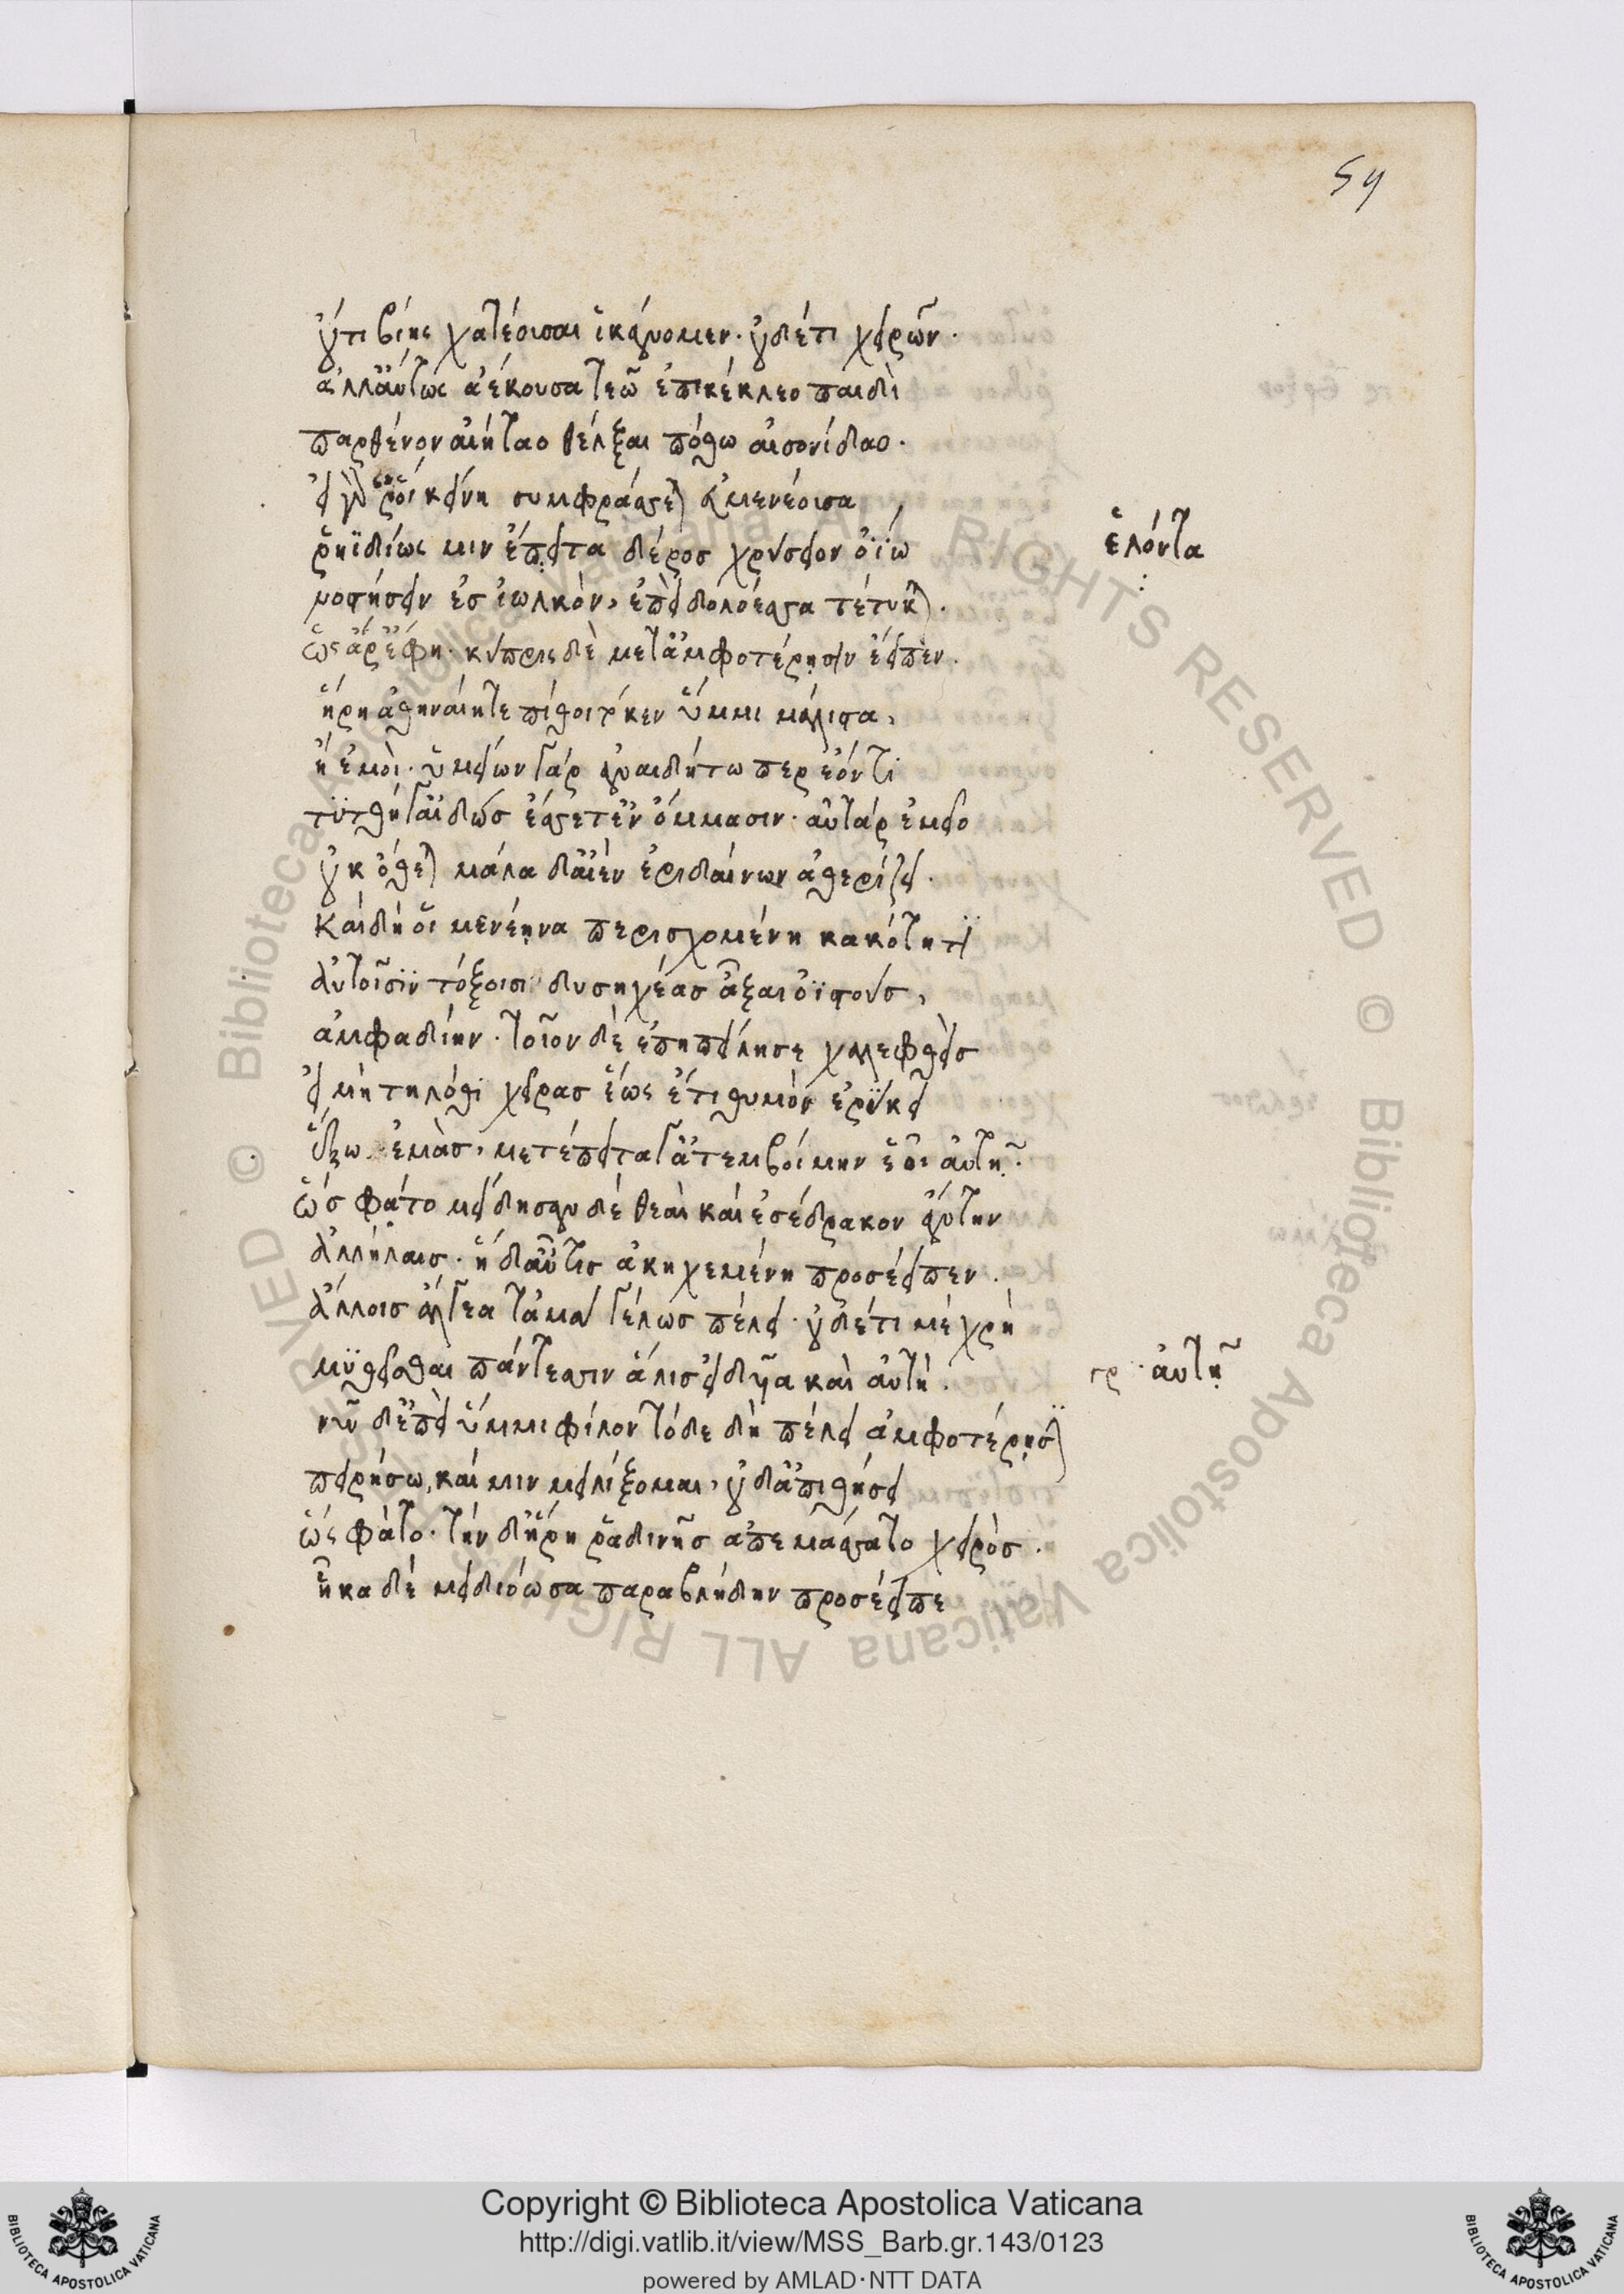 59
οὔτι βίης χατέουσαι ἱκάνομεν· οὐδέ τι χειρῶν·
ἀλλ' αὔτως ἀέκουσα τεῶ ἐπικέκλεο παιδὶ
παρθένον αἰήταο θέλξαι πόθω αἰσονίδαο·
εἰ γάρ οἱ κείνη συμφράσσεται εὐμενέουσα
ῥηϊδίως μιν ἔπειτα δέρος χρύσειον ὀΐω
ἑλόντα
νοστήσειν ἐς ἰωλκὸν, ἐπεὶ δολόεσσα τέτυκται·
ὣς ἄρ' ἔφη· κύπρις δὲ μετ' ἀμφοτέρησιν ἔειπεν·
ἥρη ἀθηναίη τε πίθοιτό κεν ὔμμι μάλιστα,
ἢ ἐμοί· ὑμείων γάρ ἀναιδήτω περ ἐόντι
τυτθή γ' αἰδὼς ἔσσετ' ἐν ὄμμασιν· αὐτάρ ἐμεῖο
οὐκ ὄθεται μάλα δ' αἰὲν ἐριδαίνων ἀθερίζει·
καὶ δή οἱ μενέηνα περισχομένη κακότητι
αὐτοῖσιν τόξοισι δυσηχέας ἆξαι ὀϊστούς,
ἀμφαδίην· τοῖον δὲ ἐπηπείλησε χαλεφθεὶς
εἰ μὴ τηλόθι χεῖρας ἕως ἔτι θυμὸν ἐρύκει
ἕξω ἐμὰς, μετέπειτα γ' ἀτεμβοίμην ἑοῖ αὐτῆ·
ὣς φάτο μείδησαν δέ θεαὶ καὶ ἐσέδρακον ἄντην
ἀλλήλαις· ἡ δ' αὖτις ἀκηχεμένη προσέειπεν·
ἄλλοις ἄλγεα τἀμὰ γέλως πέλει· οὐδέ τι μέ χρή
μυθεῖσθαι πάντεσσιν ἅλις εἰδυῖα καὶ αὐτή·
γρ· αὐτῆ
νῦν δ' ἐπεὶ ὔμμι φίλον τόδε δὴ πέλει ἀμφοτέρησι
πειρήσω, καί μιν μειλίξομαι, οὐδ' ἀπιθήσει
ὣς φάτο· τὴν δ' ἥρη ῥαδινῆς ἀπεμάσσατο χειρὸς·
ἦκα δέ μειδιόωσα παραβλήδην προσέειπε
Copyright © Biblioteca Apostolica Vaticana
http://digi.vatlib.it/view/MSS_Barb.gr.143/0123
powered by AMLAD·NTT DATA